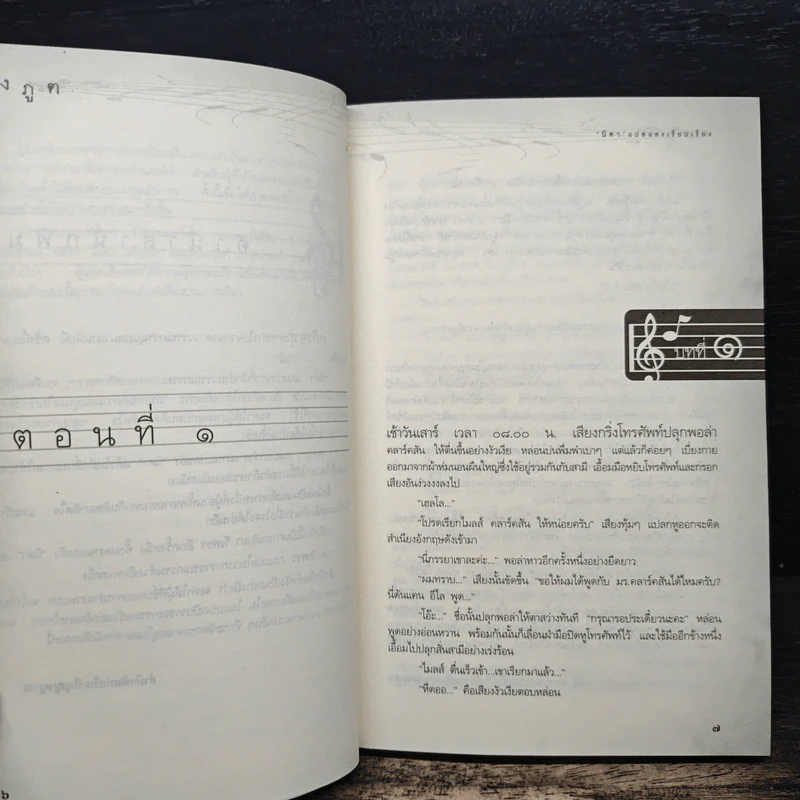 งภูต
ตอนที่ ๑
๖
"นิดา" แปลและเรียบเรียง
บทที่ ๑
เช้าวันเสาร์ เวลา ๐๘.๐๐ น. เสียงกริ่งโทรศัพท์ปลุกพอล่า
คลาร์คสัน ให้ตื่นขึ้นอย่างงัวเงีย หล่อนบ่นพึมพำเบาๆ แต่แล้วก็ค่อยๆ เบี่ยงกาย
ออกมาจากผ้าห่มนอนผืนใหญ่ซึ่งใช้อยู่รวมกันกับสามี เอื้อมมือหยิบโทรศัพท์และกรอก
เสียงอันง่วงงงลงไป
"เฮลโล..."
"โปรดเรียกไมลส์ คลาร์คสัน ให้หน่อยครับ" เสียงทุ้มๆ แปลกหูออกจะติด
สำเนียงอังกฤษดังเข้ามา
"นี่ภรรยาเขาละค่ะ..." พอล่าหาวอีกครั้งหนึ่งอย่างยืดยาว
"ผมทราบ..." เสียงนั้นขัดขึ้น "ขอให้ผมได้พูดกับ มร.คลาร์คสันได้ไหมครับ?
นี่ดันแคน อีไล พูด..."
"โอ๊ะ..." ชื่อนั้นปลุกพอล่าให้ตาสว่างทันที "กรุณารอประเดี๋ยวนะคะ" หล่อน
พูดอย่างอ่อนหวาน พร้อมกันนั้นก็เลื่อนฝ่ามือปิดหูโทรศัพท์ไว้ และใช้มืออีกข้างหนึ่ง
เอื้อมไปปลุกสั่นสามีอย่างเร่งร้อน
"ไมลส์ ตื่นเร็วเข้า...เขาเรียกมาแล้ว..."
"หืดออ..." คือเสียงงัวเงียตอบหล่อน
๗